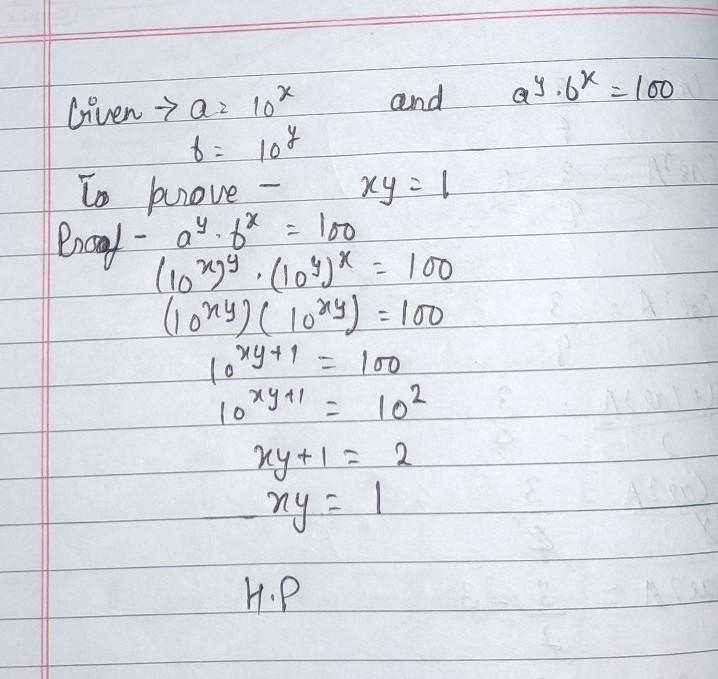 Given → a = 10^x and a^y . b^x = 100
b = 10^y
To prove - xy = 1
Proof - a^y . b^x = 100
(10^x)^y . (10^y)^x = 100
(10^xy) (10^xy) = 100
10^xy+1 = 100
10^xy+1 = 10^2
xy+1 = 2
xy = 1
H.P